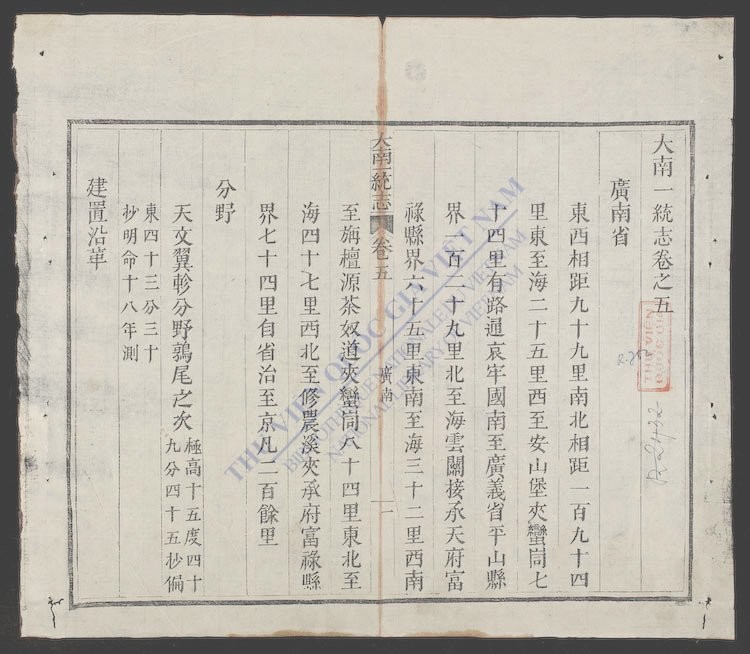 大南一統志卷之五
廣南省
東西相距九十九里南北相距一百九十四
里東至海二十五里西至安山堡夾蠻峝七
十四里有路通哀牢國南至廣義省平山縣
界一百二十九里北至海雲關接承天府富
祿縣界六十五里東南至海三十二里西南
大南一統志 卷五 廣南 一
至旃檀源茶奴道夾蠻峝八十四里東北至
海四十七里西北至修農溪夾承府富祿縣
界七十四里自省治至京凡二百餘里
分野
天文翼軫分野鶉尾之次極高十五度四十
九分四十五抄偏
東四十三分三十
抄明命十八年測
建置沿革
THƯ VIỆN QUỐC GIA VIỆT NAM
BIBLIOTHÈQUE NATIONALE DU VIETNAM
NATIONAL LIBRARY OF VIETNAM
THƯ VIỆN